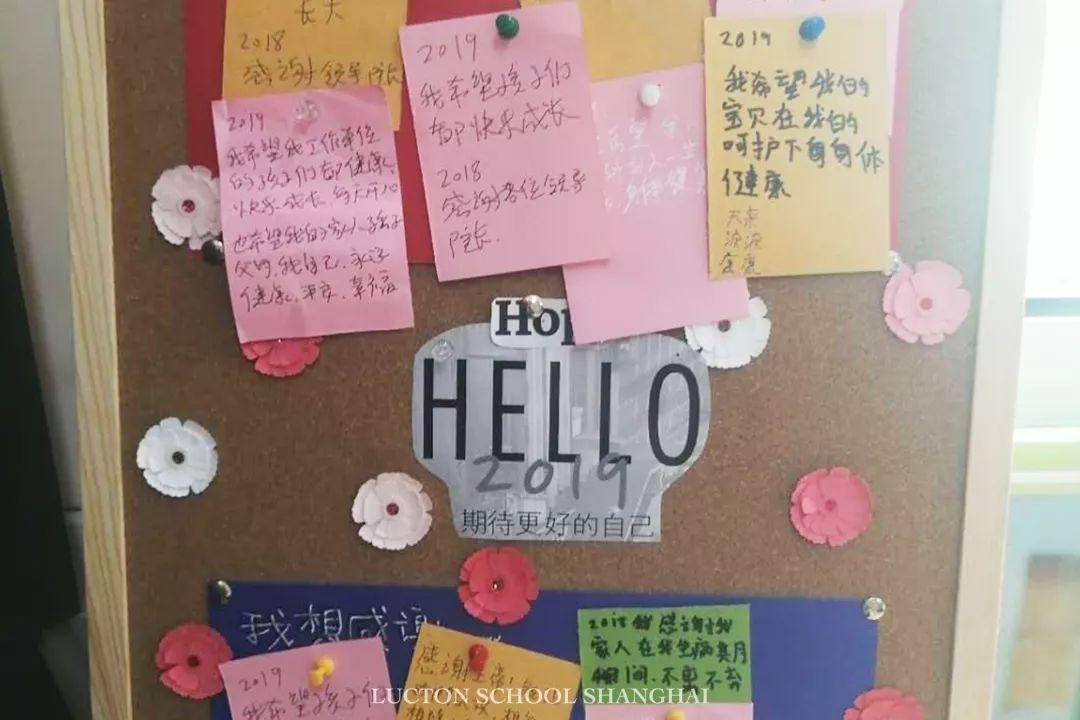 长大
2018
感谢领导院长
2019
我希望孩子们
都快乐成长
2018
感谢各位领导
院长.
2019
我希望我们的
宝贝在我们的
呵护下身身体
健康
2019
我希望我工作单位
的孩子们都健康、
快乐成长、每天开心
也希望我的家人、孩子
父母、我自己、永远
健康、平安、幸福
身体健
Hop
HELLO
2019
期待更好的自己
我想感谢
2019
我希望孩子们
感谢
2018我感谢我
家人在我生病其月
期间.不离不弃
LUCTON SCHOOL SHANGHAI